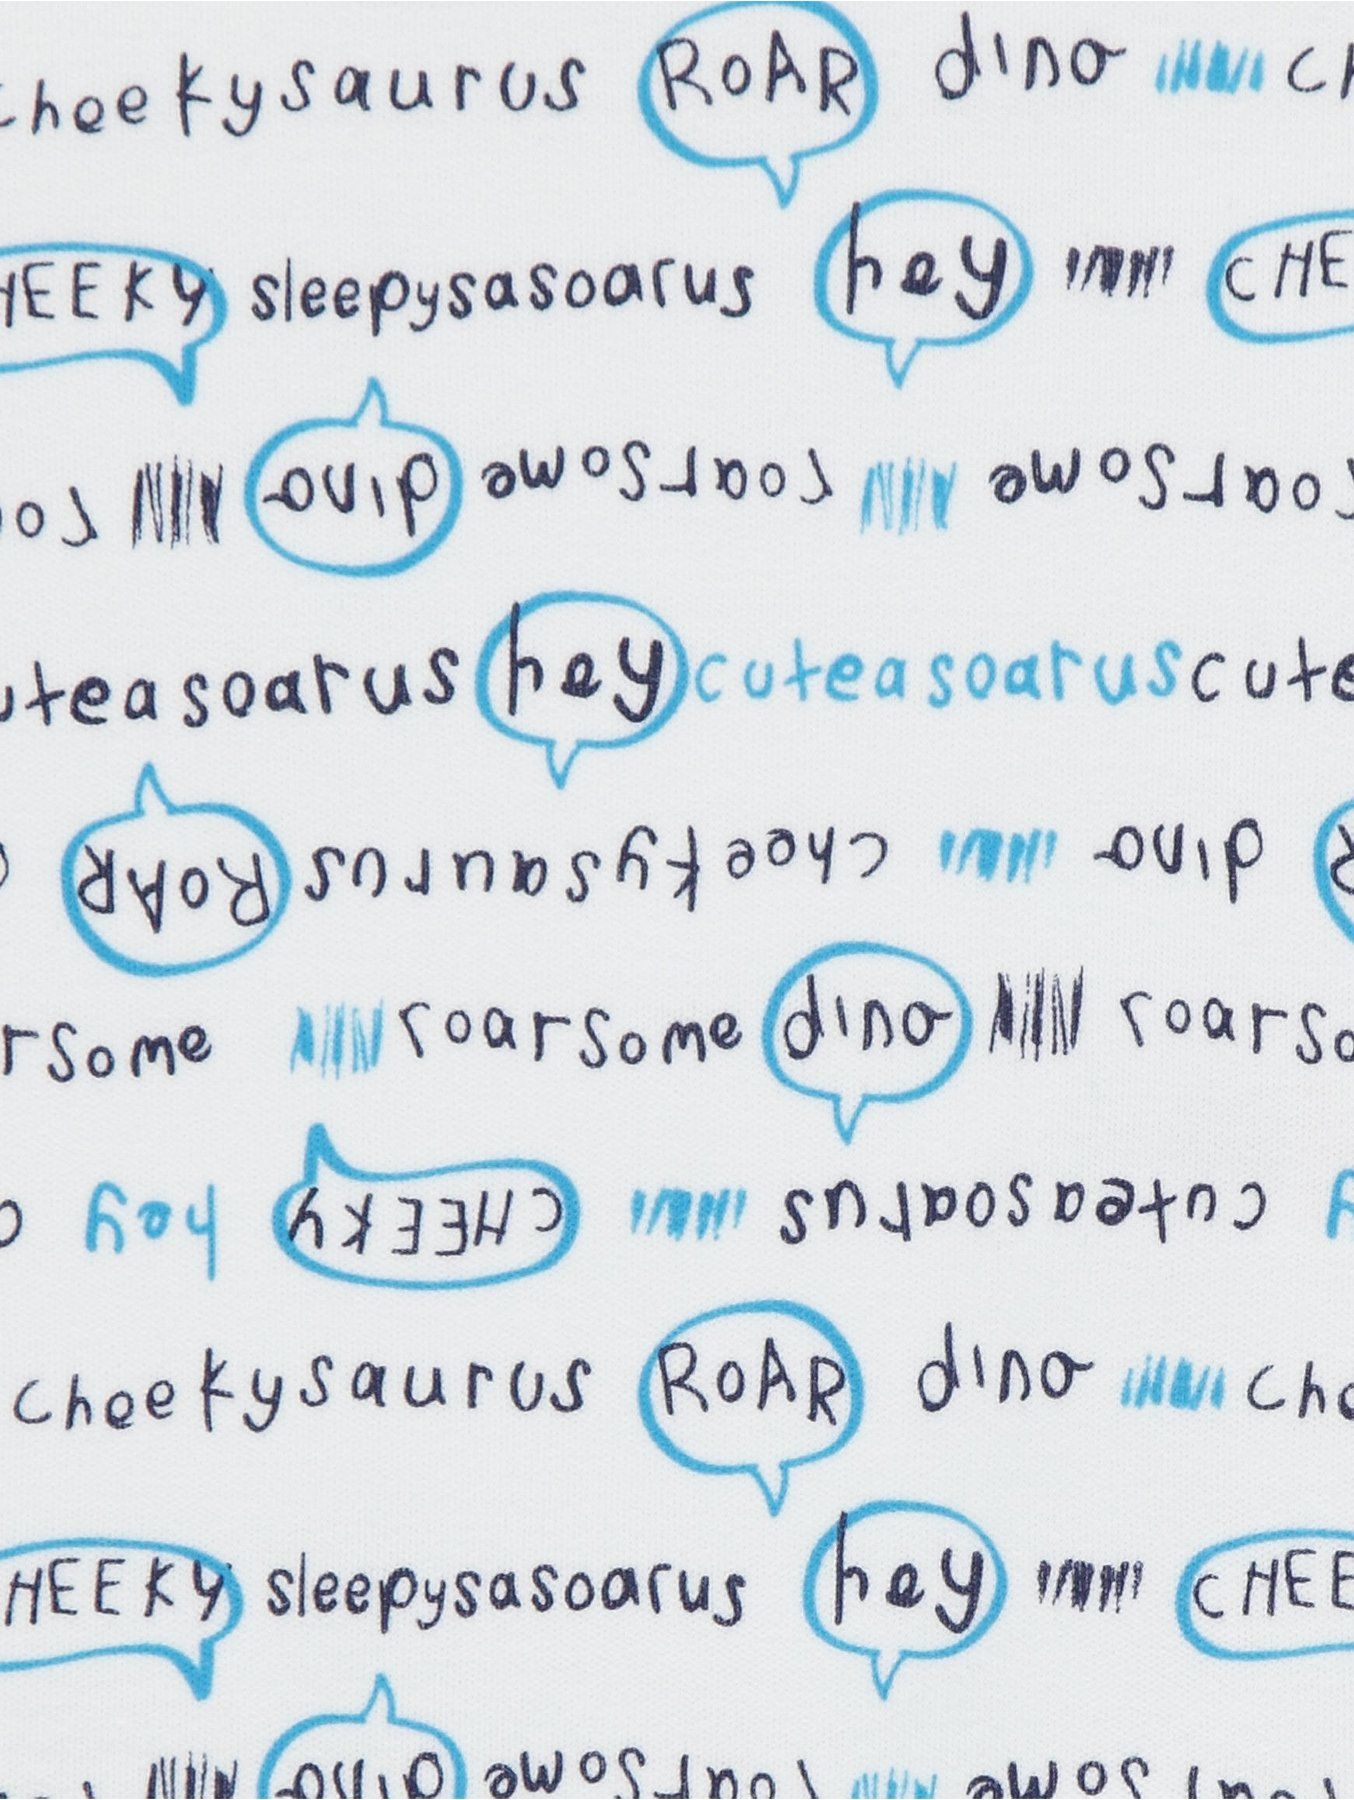 cheekysaurus ROAR dino ch
HEEKY sleepysasoarus hey CHE
roarsome roarsome dino ro
uteasoarus hey cuteasoarus cute
R dino cheekysaurus ROAR o
rsome roarsome dino roarso
y cuteasoarus CHEEKY hey c
cheekysaurus ROAR dino che
HEEKY sleepysasoarus hey CHEE
some roarsome dino